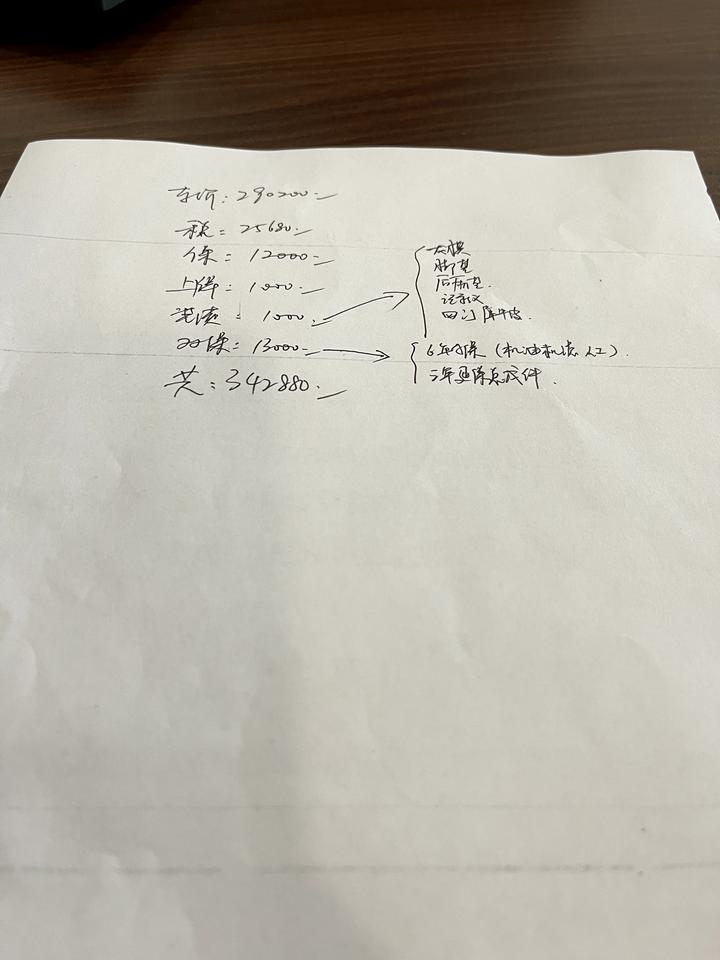 车价：290200.
税：25680.
保：12000.
上牌：1000.
渍：1000.
双保：13000.
共：342880.
太膜
脚垫
后备垫.
记录仪
四门降噪.
6年双保（机油机滤人工）.
三年更保总成件.